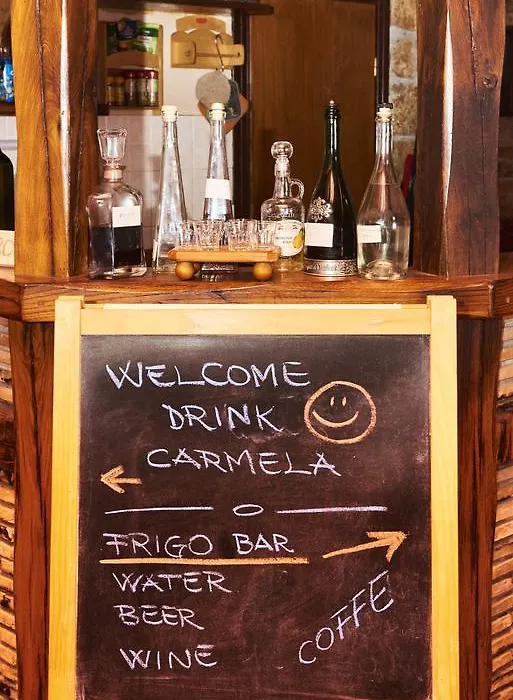 WELCOME
DRINK
CARMELA
FRIGO BAR
WATER
BEER
WINE
COFFE